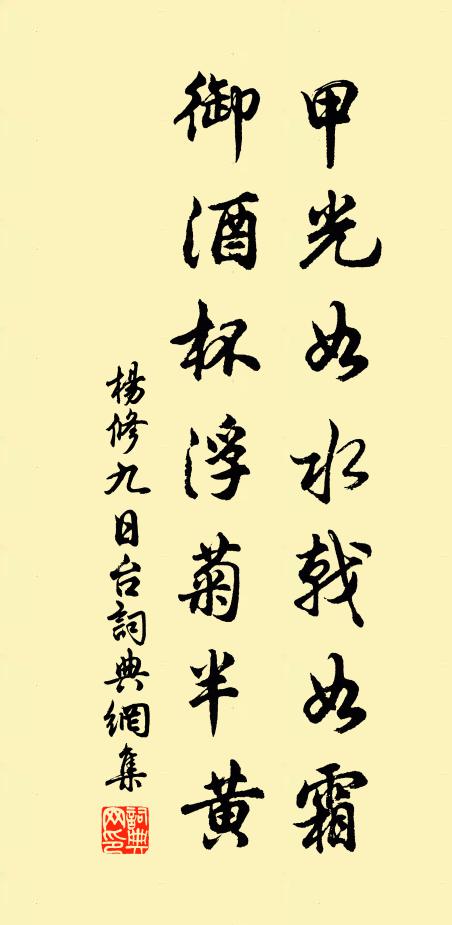 甲光如水戟如霜
御酒杯浮菊半黄
楊修九日台詞典網集
詞典网印